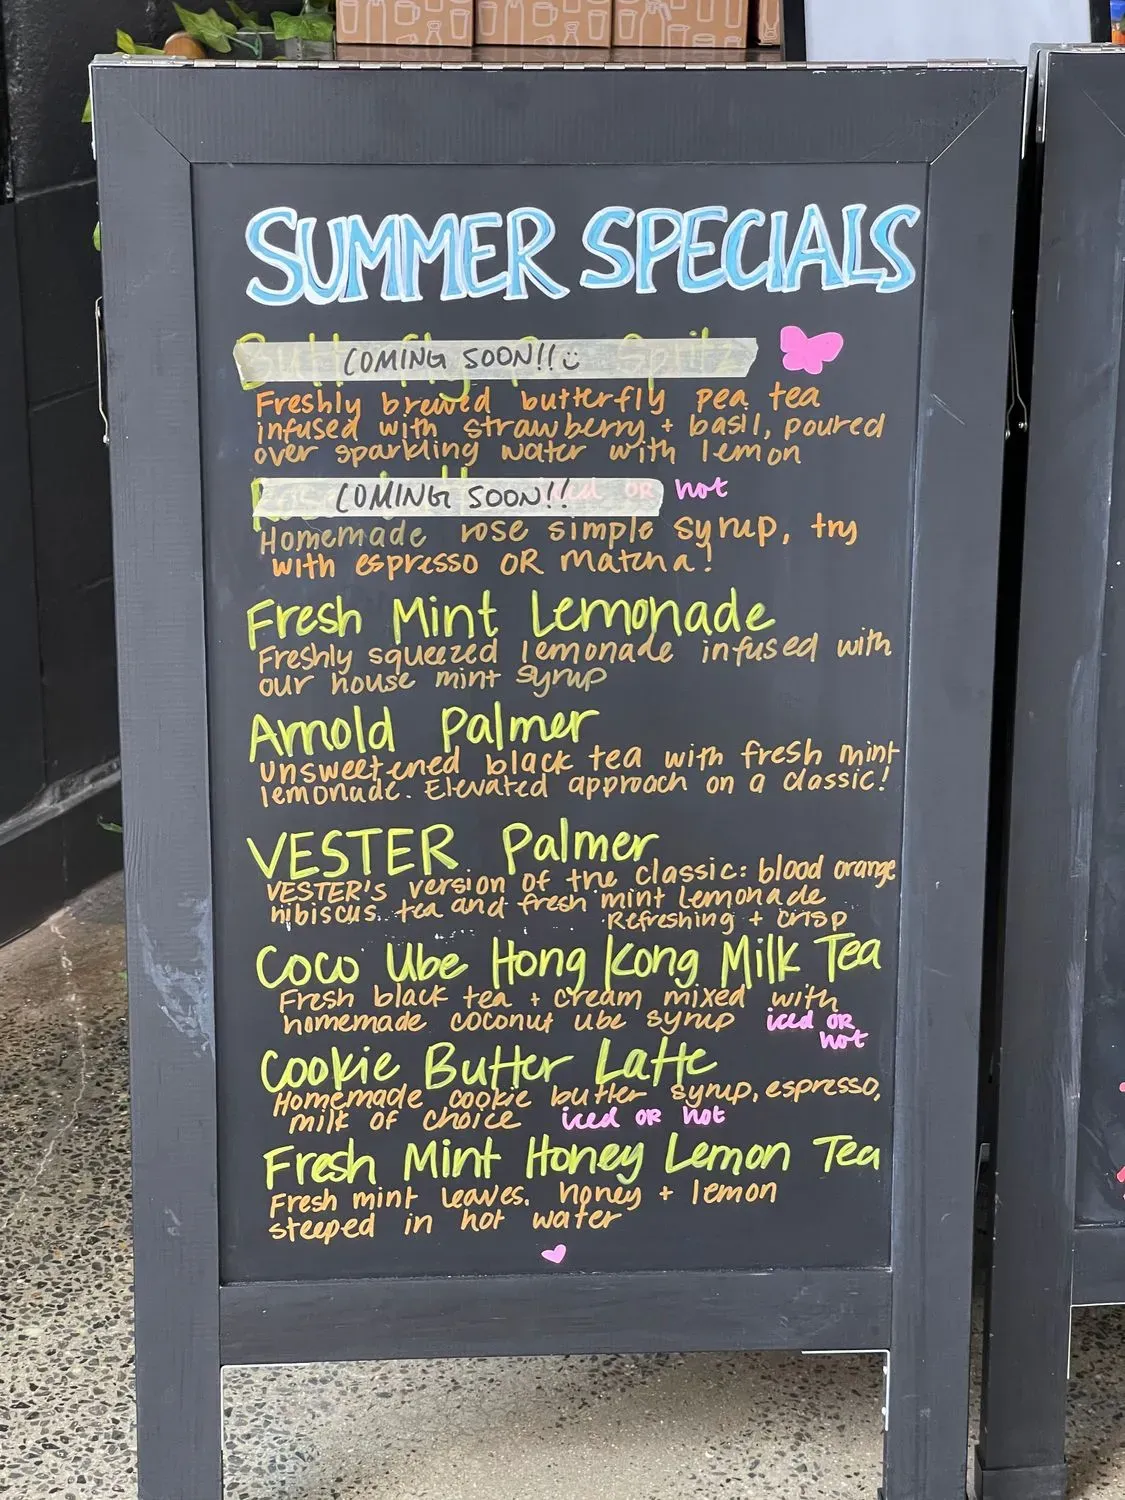 SUMMER SPECIALS
Butterfly Pea Spritz
COMING SOON!!
Freshly brewed butterfly pea tea
infused with strawberry + basil, poured
over sparkling water with lemon
COMING SOON!! iced OR hot
Homemade rose simple syrup, try
with espresso OR matcha!
Fresh Mint Lemonade
Freshly squeezed lemonade infused with
our house mint syrup
Arnold Palmer
Unsweetened black tea with fresh mint
lemonade. Elevated approach on a classic!
VESTER Palmer
VESTER's version of the classic: blood orange
hibiscus tea and fresh mint lemonade
Refreshing + crisp
Coco Ube Hong Kong Milk Tea
Fresh black tea + cream mixed with
homemade coconut ube syrup iced OR
hot
Cookie Butter Latte
Homemade cookie butter syrup, espresso,
milk of choice iced OR hot
Fresh Mint Honey Lemon Tea
Fresh mint leaves. honey + lemon
steeped in hot water